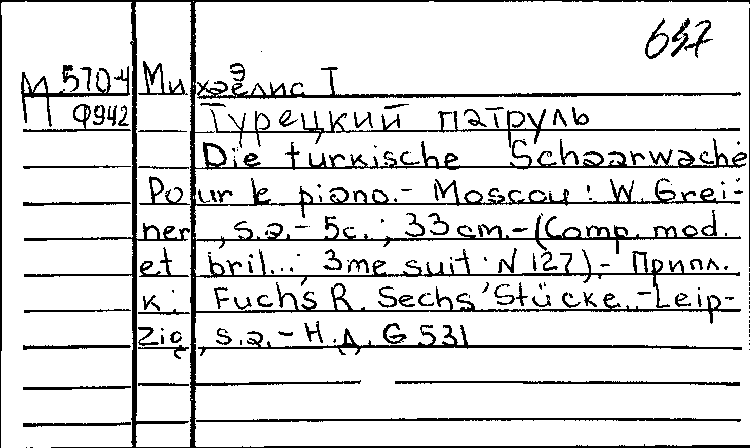 637
М 570-4 Михаэлис Т
Ф942 Турецкий патруль
Die turkische Schaarwache
Pour le piano.- Moscou: W. Grei-
ner, s.a.- 5c.; 33 cm.-(Comp. mod.
et bril...; 3me suit: N 127).- Припл.
к: Fuchs R. Sechs Stücke.-Leip-
zig, s.a.- Н.Д. G 531